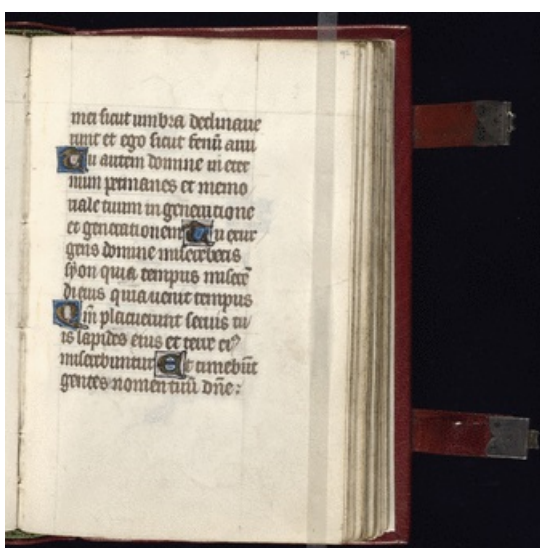 mei sicut umbra declinaue
runt et ego sicut fenū arui
Tu autem domine in eter
num permanes et memo
riale tuum in generatione
et generationem Tu exur
gens domine misereberis
syon quia tempus miserē
di eius quia uenit tempus
Qm̄ placuerunt seruis tu
is lapides eius et terre ei⁹
miserebuntur Et timebūt
gentes nomen tuū dn̄e :